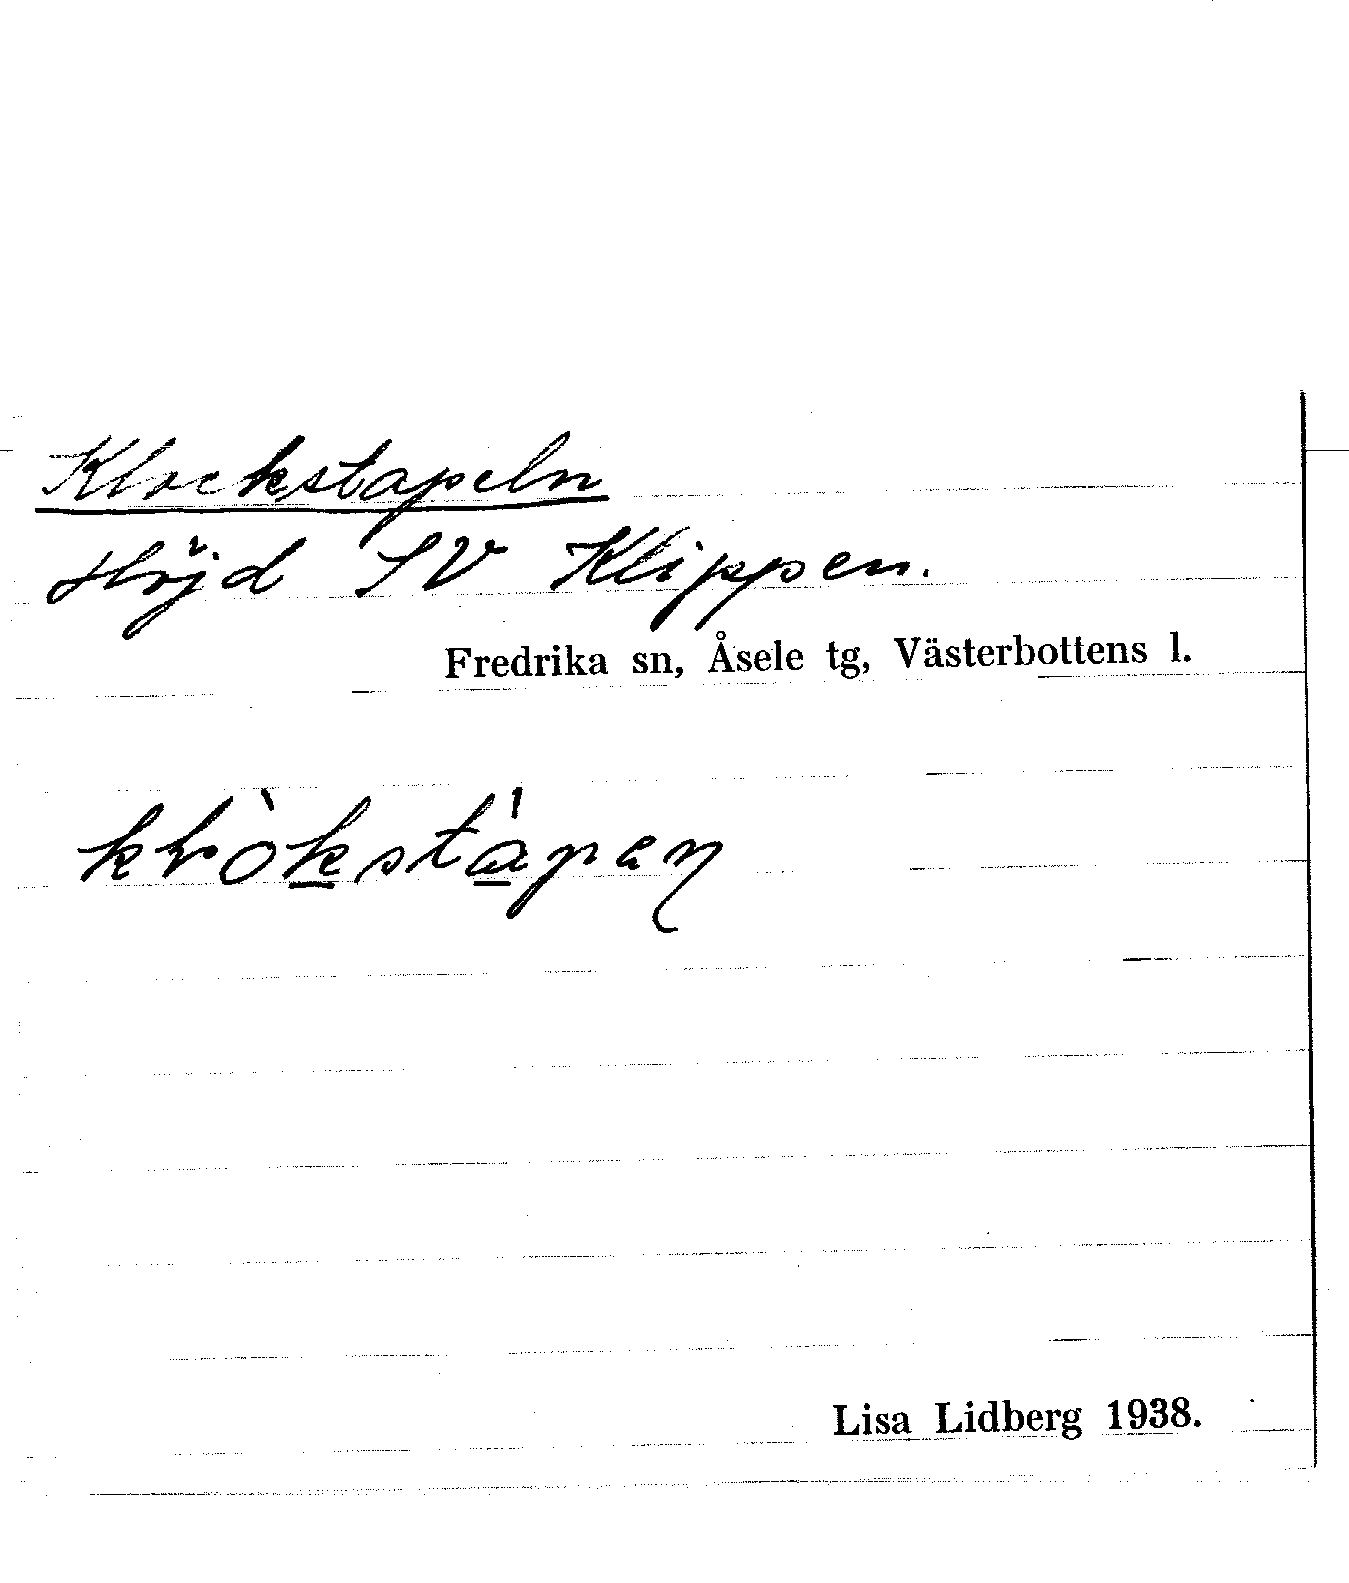 Klockstapeln
Höjd SV Klippen.
Fredrika sn, Åsele tg, Västerbottens l.
kròk̲stá̲pen̦
Lisa Lidberg 1938.